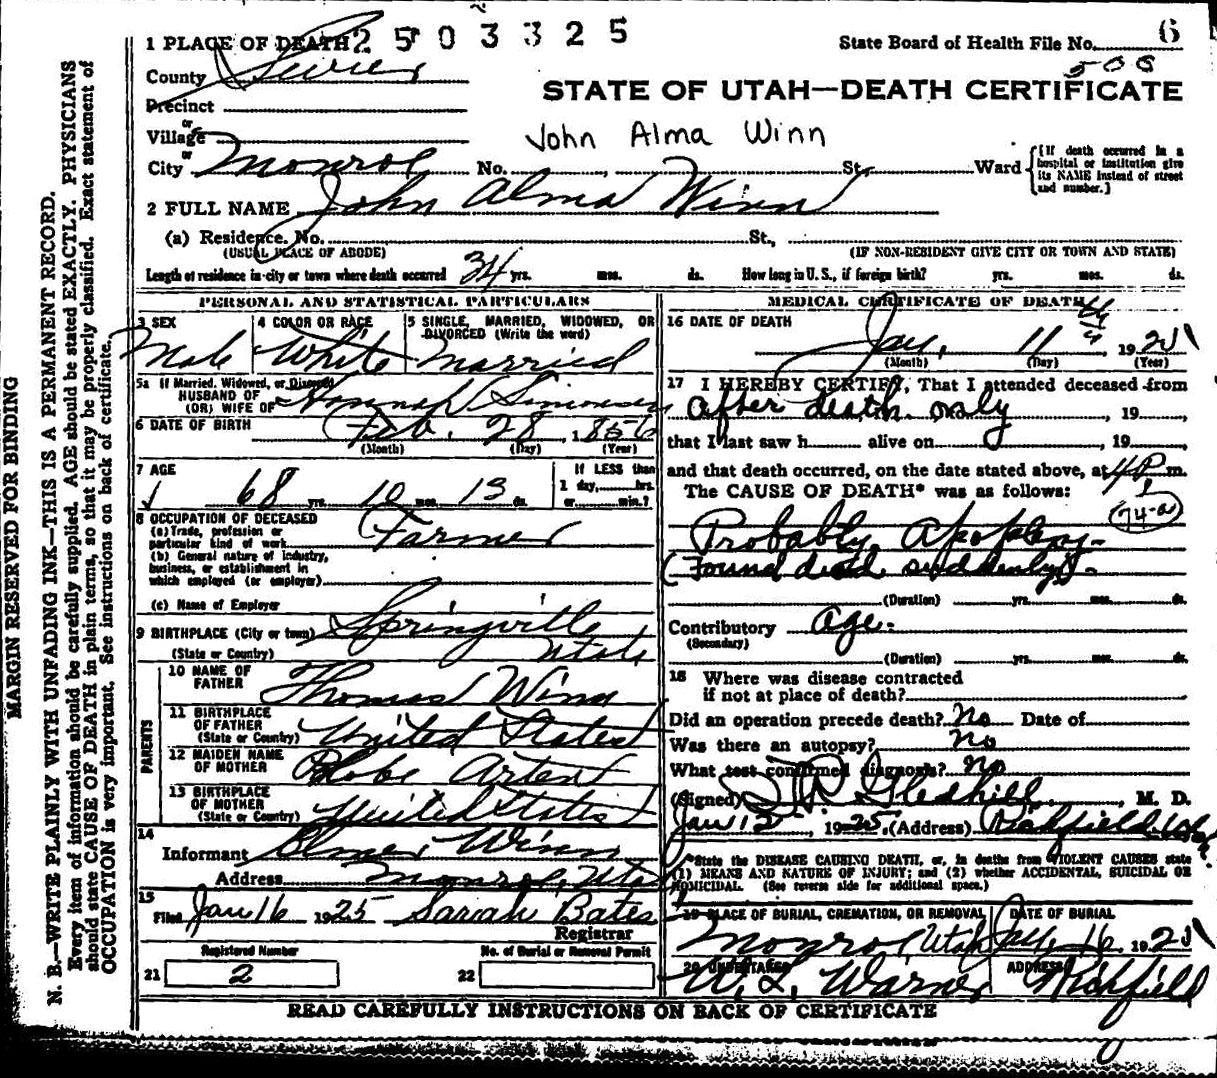 2503325
6
State Board of Health File No.
500
1 PLACE OF DEATH
County Sevier
STATE OF UTAH—DEATH CERTIFICATE
Precinct
or
Village
or
John Alma Winn
City Monroe No. , St., Ward
{If death occurred in a hospital or institution give its NAME instead of street and number.}
2 FULL NAME John Alma Winn
(a) Residence. No. St.,
(USUAL PLACE OF ABODE) (IF NON-RESIDENT GIVE CITY OR TOWN AND STATE)
Length of residence in city or town where death occurred 34 yrs. mos. ds. How long in U. S., if foreign birth? yrs. mos. ds.
PERSONAL AND STATISTICAL PARTICULARS
3 SEX
Male
4 COLOR OR RACE
White
5 SINGLE, MARRIED, WIDOWED, OR DIVORCED (Write the word)
Married
5a If Married, Widowed, or Divorced
HUSBAND OF
(OR) WIFE OF Hannah Simonsen
6 DATE OF BIRTH Feb. 28, 1856
(Month) (Day) (Year)
7 AGE
68 yrs. 10 mos. 13 ds.
If LESS than
1 day, hrs.
or min.?
8 OCCUPATION OF DECEASED
(a) Trade, profession or
particular kind of work Farmer
(b) General nature of industry,
business, or establishment in
which employed (or employer)
(c) Name of Employer
9 BIRTHPLACE (City or town) Springville
(State or Country) Utah
PARENTS
10 NAME OF
FATHER Thomas Winn
11 BIRTHPLACE
OF FATHER
(State or Country) United States
12 MAIDEN NAME
OF MOTHER Phebe
13 BIRTHPLACE
OF MOTHER
(State or Country) United States
14
Informant Elmer Winn
Address Monroe, Utah
15
Filed Jan 16 1925 Sarah Bates
Registrar
Registered Number
21 2
No. of Burial or Removal Permit
22
MEDICAL CERTIFICATE OF DEATH
16 DATE OF DEATH
Jan. 11, 1925
(Month) (Day) (Year)
17 I HEREBY CERTIFY, That I attended deceased from
after death only, 19 ,
that I last saw h alive on , 19
and that death occurred, on the date stated above, at 4 P. m.
The CAUSE OF DEATH* was as follows:
74-a
Probably Apoplexy-
(Found dead suddenly).
(Duration) yrs. mos. ds.
Contributory age.
(Secondary)
(Duration) yrs. mos. ds.
18 Where was disease contracted
if not at place of death?
Did an operation precede death? No Date of
Was there an autopsy? no
What test confirmed diagnosis? no
(Signed) Gledhill, M. D.
Jan 12, 1925. (Address) Richfield Utah
*State the DISEASE CAUSING DEATH, or, in deaths from VIOLENT CAUSES state
(1) MEANS AND NATURE OF INJURY; and (2) whether ACCIDENTAL, SUICIDAL OR
HOMICIDAL. (See reverse side for additional space.)
19 PLACE OF BURIAL, CREMATION, OR REMOVAL
Monroe Utah
DATE OF BURIAL
Jan. 16 1925
20 UNDERTAKER
W. L. Warner
ADDRESS
Richfield
READ CAREFULLY INSTRUCTIONS ON BACK OF CERTIFICATE
MARGIN RESERVED FOR BINDING
N. B.—WRITE PLAINLY WITH UNFADING INK—THIS IS A PERMANENT RECORD.
Every item of information should be carefully supplied. AGE should be stated EXACTLY. PHYSICIANS
should state CAUSE OF DEATH in plain terms, so that it may be properly classified. Exact statement of
OCCUPATION is very important. See instructions on back of certificate.